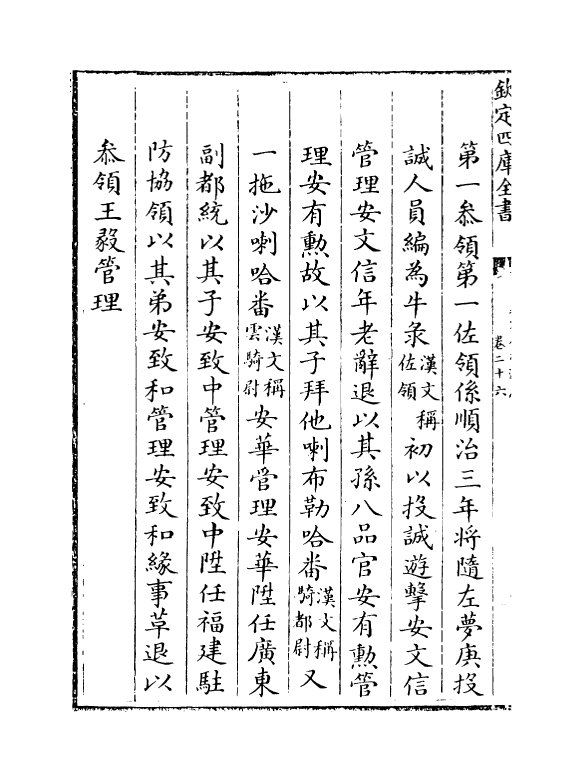 欽定四庫全書
卷二十六
第一叅領第一佐領係順治三年將隨左夢庚投
誠人員編為牛彔漢文稱佐領初以投誠遊擊安文信
管理安文信年老辭退以其孫八品官安有勲管
理安有勲故以其子拜他喇布勒哈番漢文稱騎都尉又
一拖沙喇哈番漢文稱雲騎尉安華管理安華陞任廣東
副都統以其子安致中管理安致中陞任福建駐
防協領以其弟安致和管理安致和緣事革退以
叅領王毅管理